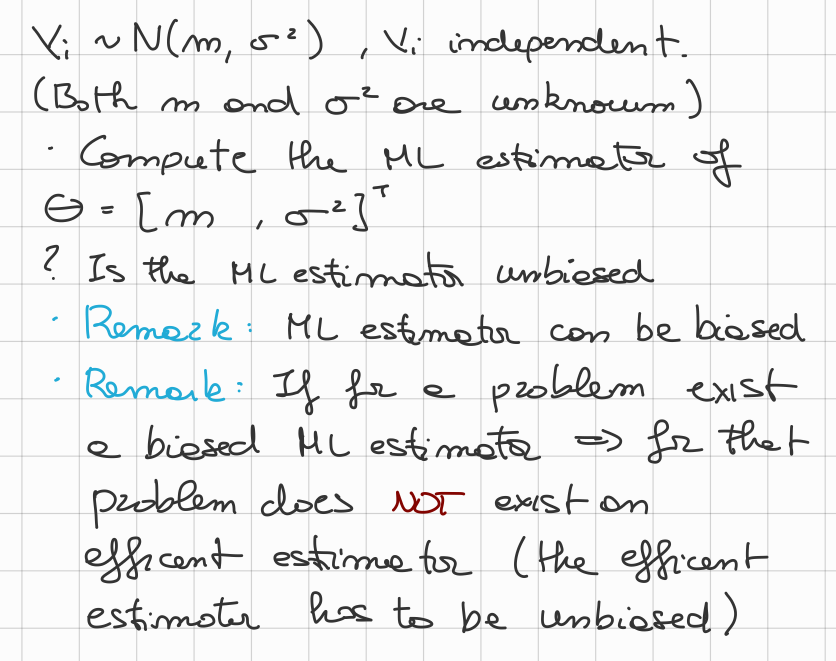 Vi ~ N(m, σ²) , Vi independent.
(Both m and σ² are unknown)
· Compute the ML estimator of
Θ = [m , σ²]ᵀ
? Is the ML estimator unbiased
· Remark: ML estimator can be biased
· Remark: If for a problem exist
a biased ML estimator => for that
problem does NOT exist an
efficent estimator (the efficent
estimator has to be unbiased)